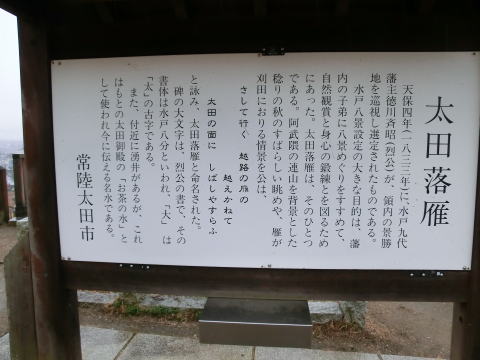 太田落雁
天保四年(一八三三年)に、水戸九代
藩主徳川斉昭(烈公)が、領内の景勝
地を巡視し選定されたものである。
水戸八景設定の大きな目的は、藩
内の子弟に八景めぐりをすすめて、
自然観賞と身心の鍛練とを図るため
にあった。太田落雁は、そのひとつ
である。阿武隈の連山を背景とした
稔りの秋のすばらしい眺めや、雁が
刈田におりる情景を公は、
さして行く 越路の雁の
越えかねて
太田の面に しばしやすらふ
と詠み、太田落雁と命名された。
碑の大文字は、烈公の書で、その
書体は水戸八分といわれ、「大」は
「太」の古字である。
また、付近に湧井があるが、これ
はもとの太田御殿の「お茶の水」と
して使われ今に伝える名水である。
常陸太田市